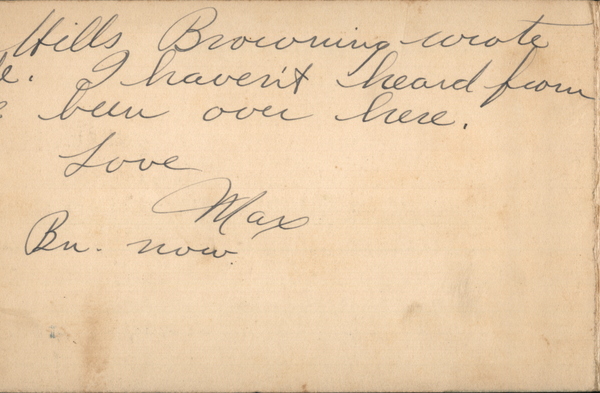 Hills Browning wrote
e. I haven't heard from
e been over here.
Love
Max
Bn. now.